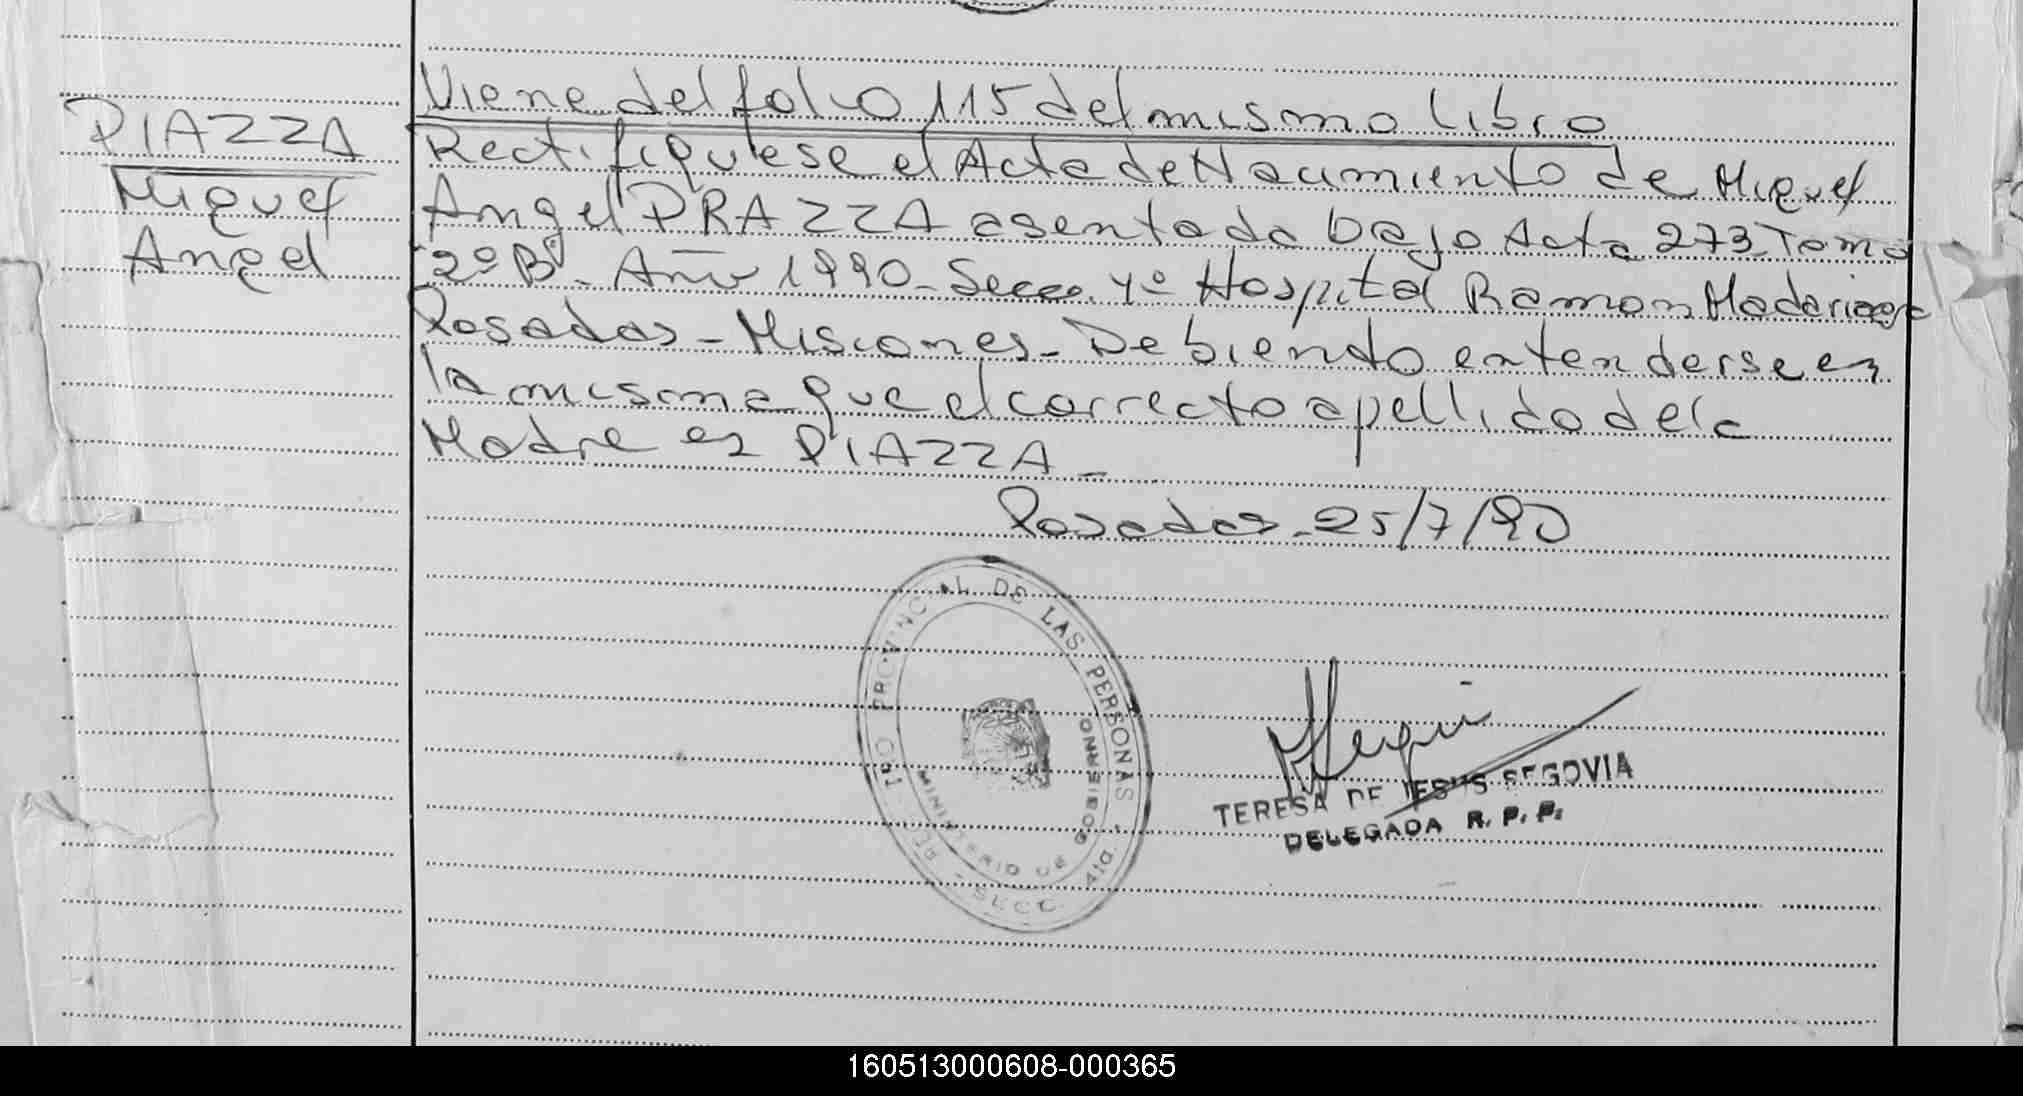 PIAZZA
Miguel
Angel
Viene del folio 115 del mismo libro
Rectifiquese el Acta de Nacimiento de Miguel
Angel PRAZZA asentada bajo Acta 273 Tomo
2º Bº - Año 1990 - Secc. 4º Hospital Ramon Madariaga
Posadas - Misiones - Debiendo entenderse en
la misma que el correcto apellido de la
Madre es PIAZZA -
Posadas - 25/7/90
PROVINCIAL DE LAS PERSONAS
MINISTERIO DE GOBIERNO
SECC.
TERESA DE JESUS SEGOVIA
DELEGADA R. P. P.
160513000608-000365